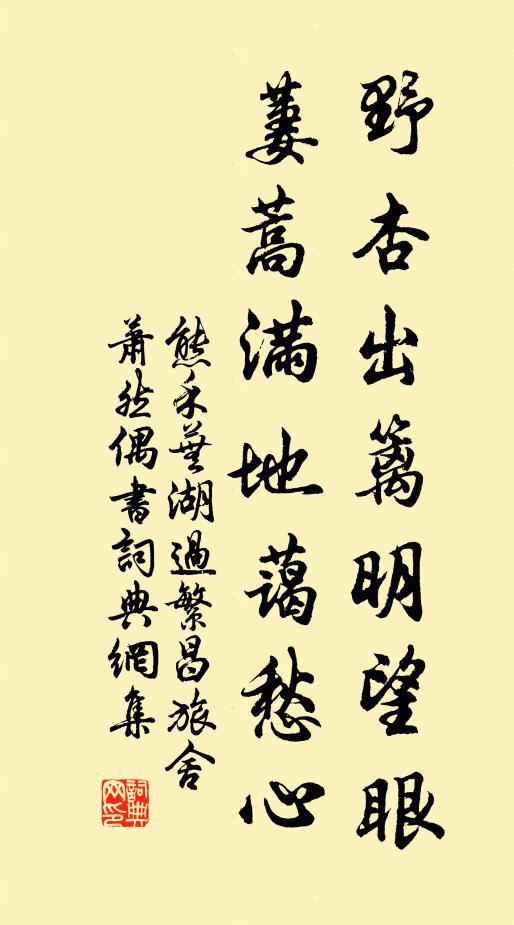 野杏出篱明望眼
蒌蒿满地蔼愁心
熊禾蕪湖過繁昌旅舍
萧然偶書詞典網集
詞典网印